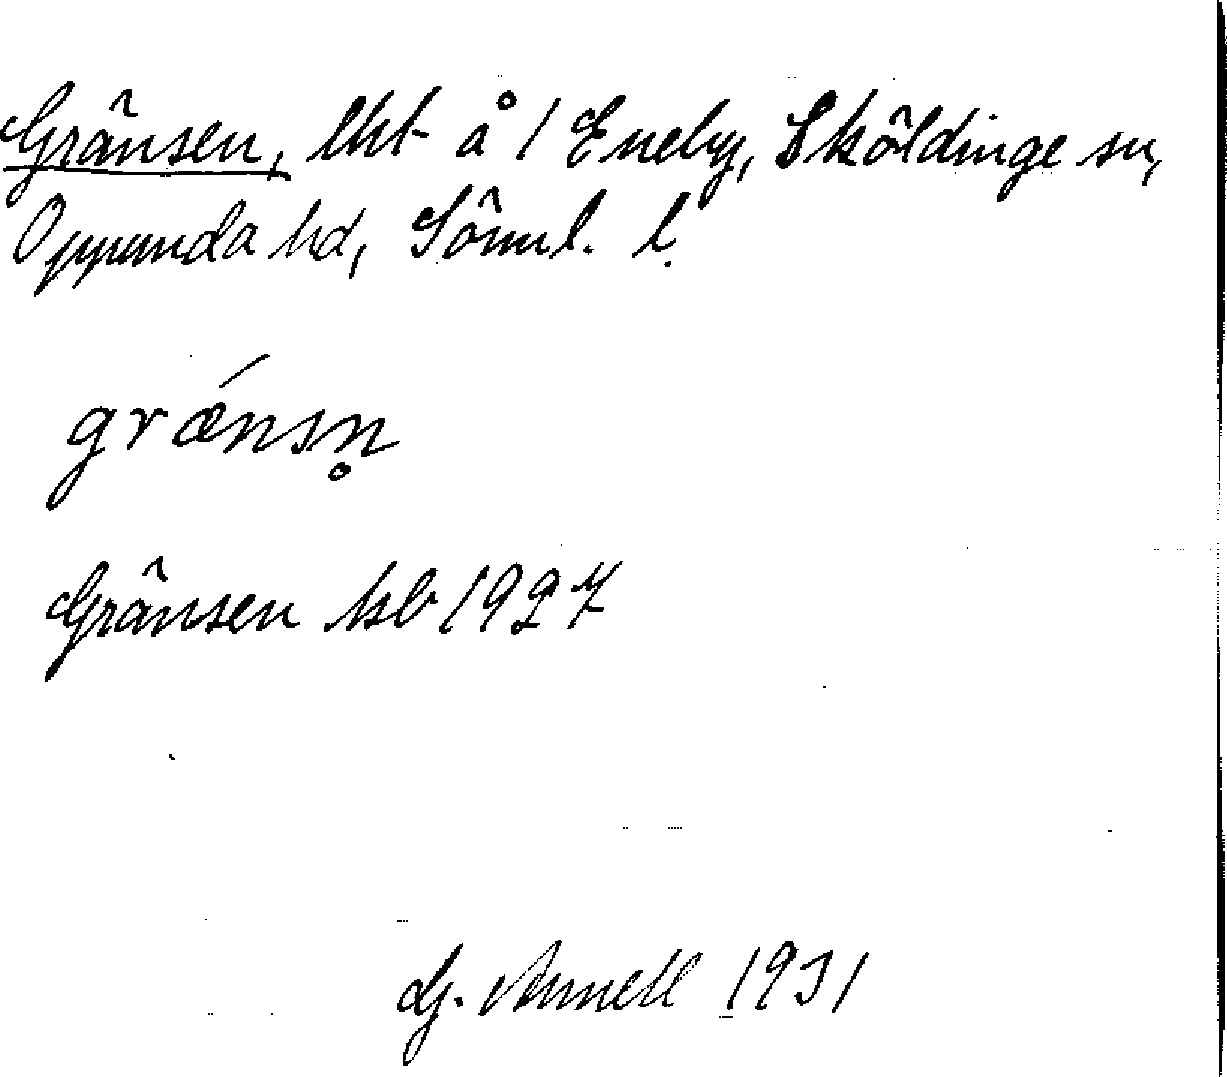 Gränsen, lht å 1 Eneby, Sköldinge sn,
Oppunda hd, Söml. l.
grǽnsn̥
Gränsen kb 1927
G. Annell 1931